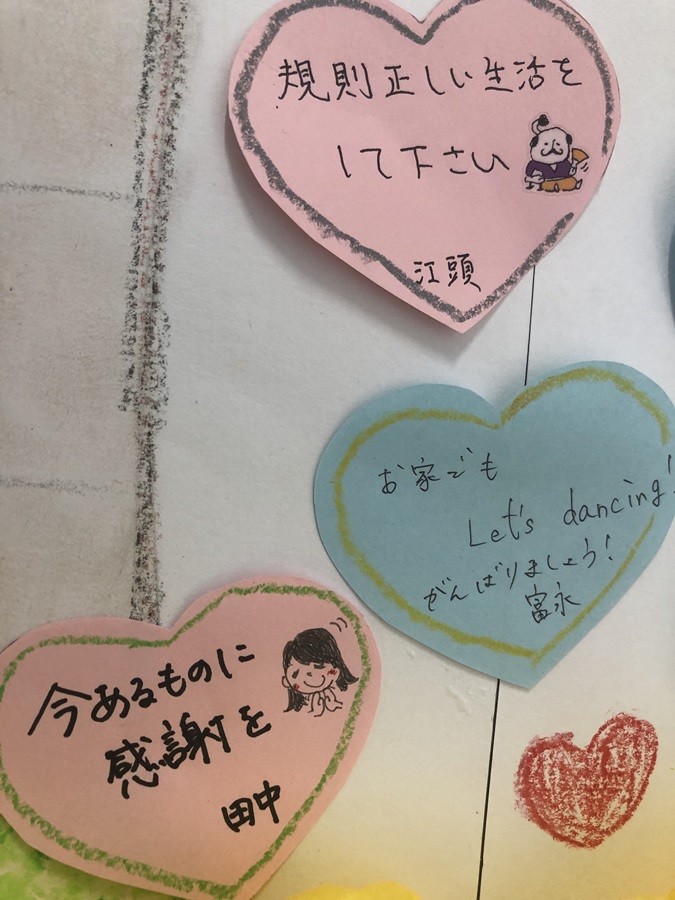 規則正しい生活を
して下さい
江頭
お家でも
Let's dancing!
がんばりましょう!
富永
今あるものに
感謝を
田中